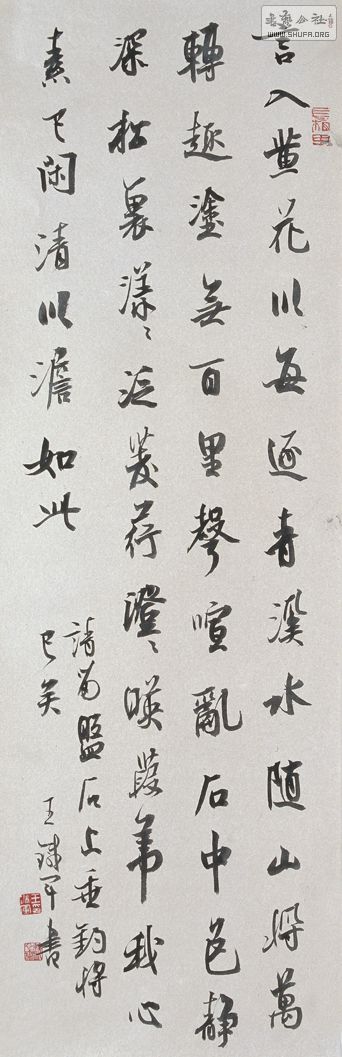 書藝公社
WWW.SHUFA.ORG
言入黄花川每逐青溪水随山将萬
轉趣塗無百里聲喧亂石中色静
深松裏漾〻泛菱荇澄〻映葭葦我心
素已閑清川澹如此
請留盤石上垂釣将
已矣 王 書